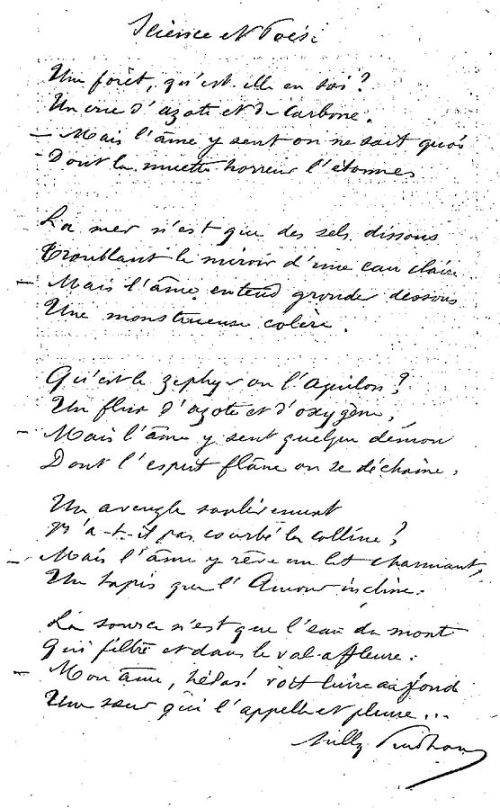 Science et Poési
Une forêt, qu'est-elle en soi?
Un crue d'azote et de Carbone.
— Mais l'âme y sent on ne sait quoi
- Dont la muette horreur l'étonne.
La mer n'est que des sels dissous
Troublant le miroir d'une eau claire
— Mais l'âme entend gronder dessous
Une monstrueuse colère.
Qu'est le zéphyr ou l'Aquilon?
Un flux d'azote et d'oxygène,
— Mais l'âme y sent quelque démon
Dont l'esprit flâne ou se déchaîne.
Un aveugle soulèvement
N'a-t-il pas courbé la colline?
— Mais l'âme y rêve un lit charmant,
Un tapis que l'Amour incline.
La source n'est que l'eau du mont
Qui filtre et dans le val affleure.
— Mon âme, hélas! voit luire au fond
Une sœur qui l'appelle et pleure...
Sully Prudhomme